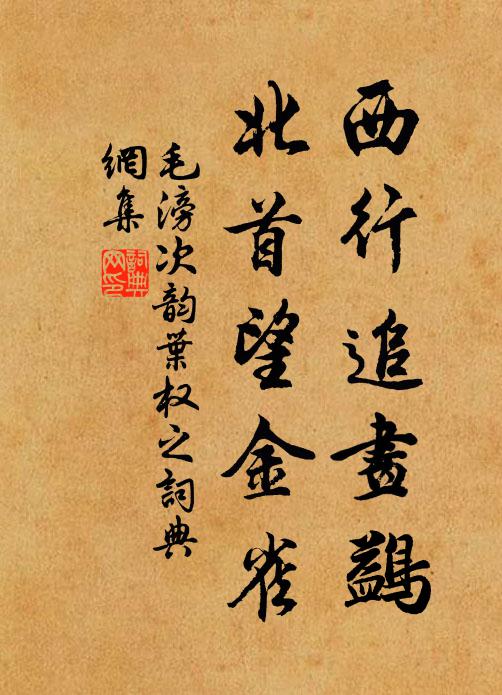 西行追畫鷁
北首望金雀
毛滂次韵葉权之詞典
網集
詞典網印